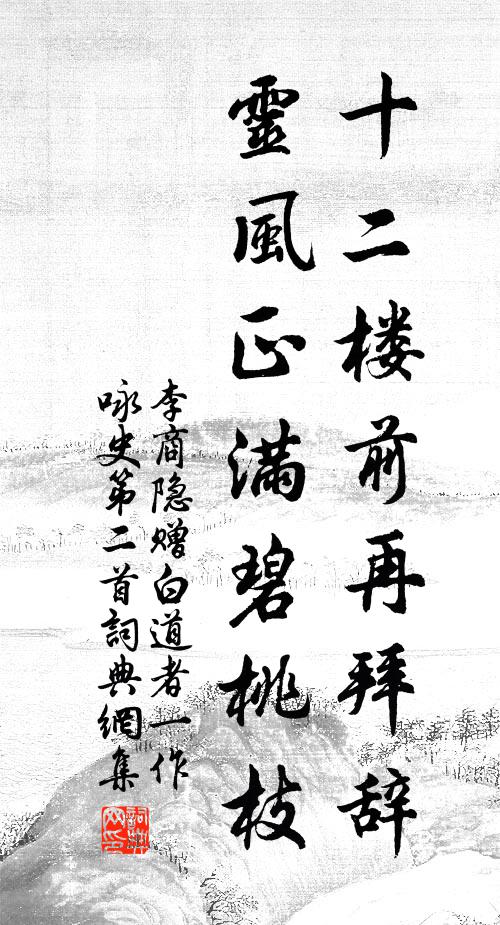 十二楼前再拜辞
靈風正满碧桃枝
李商隐赠白道者一作
咏史第二首詞典網集